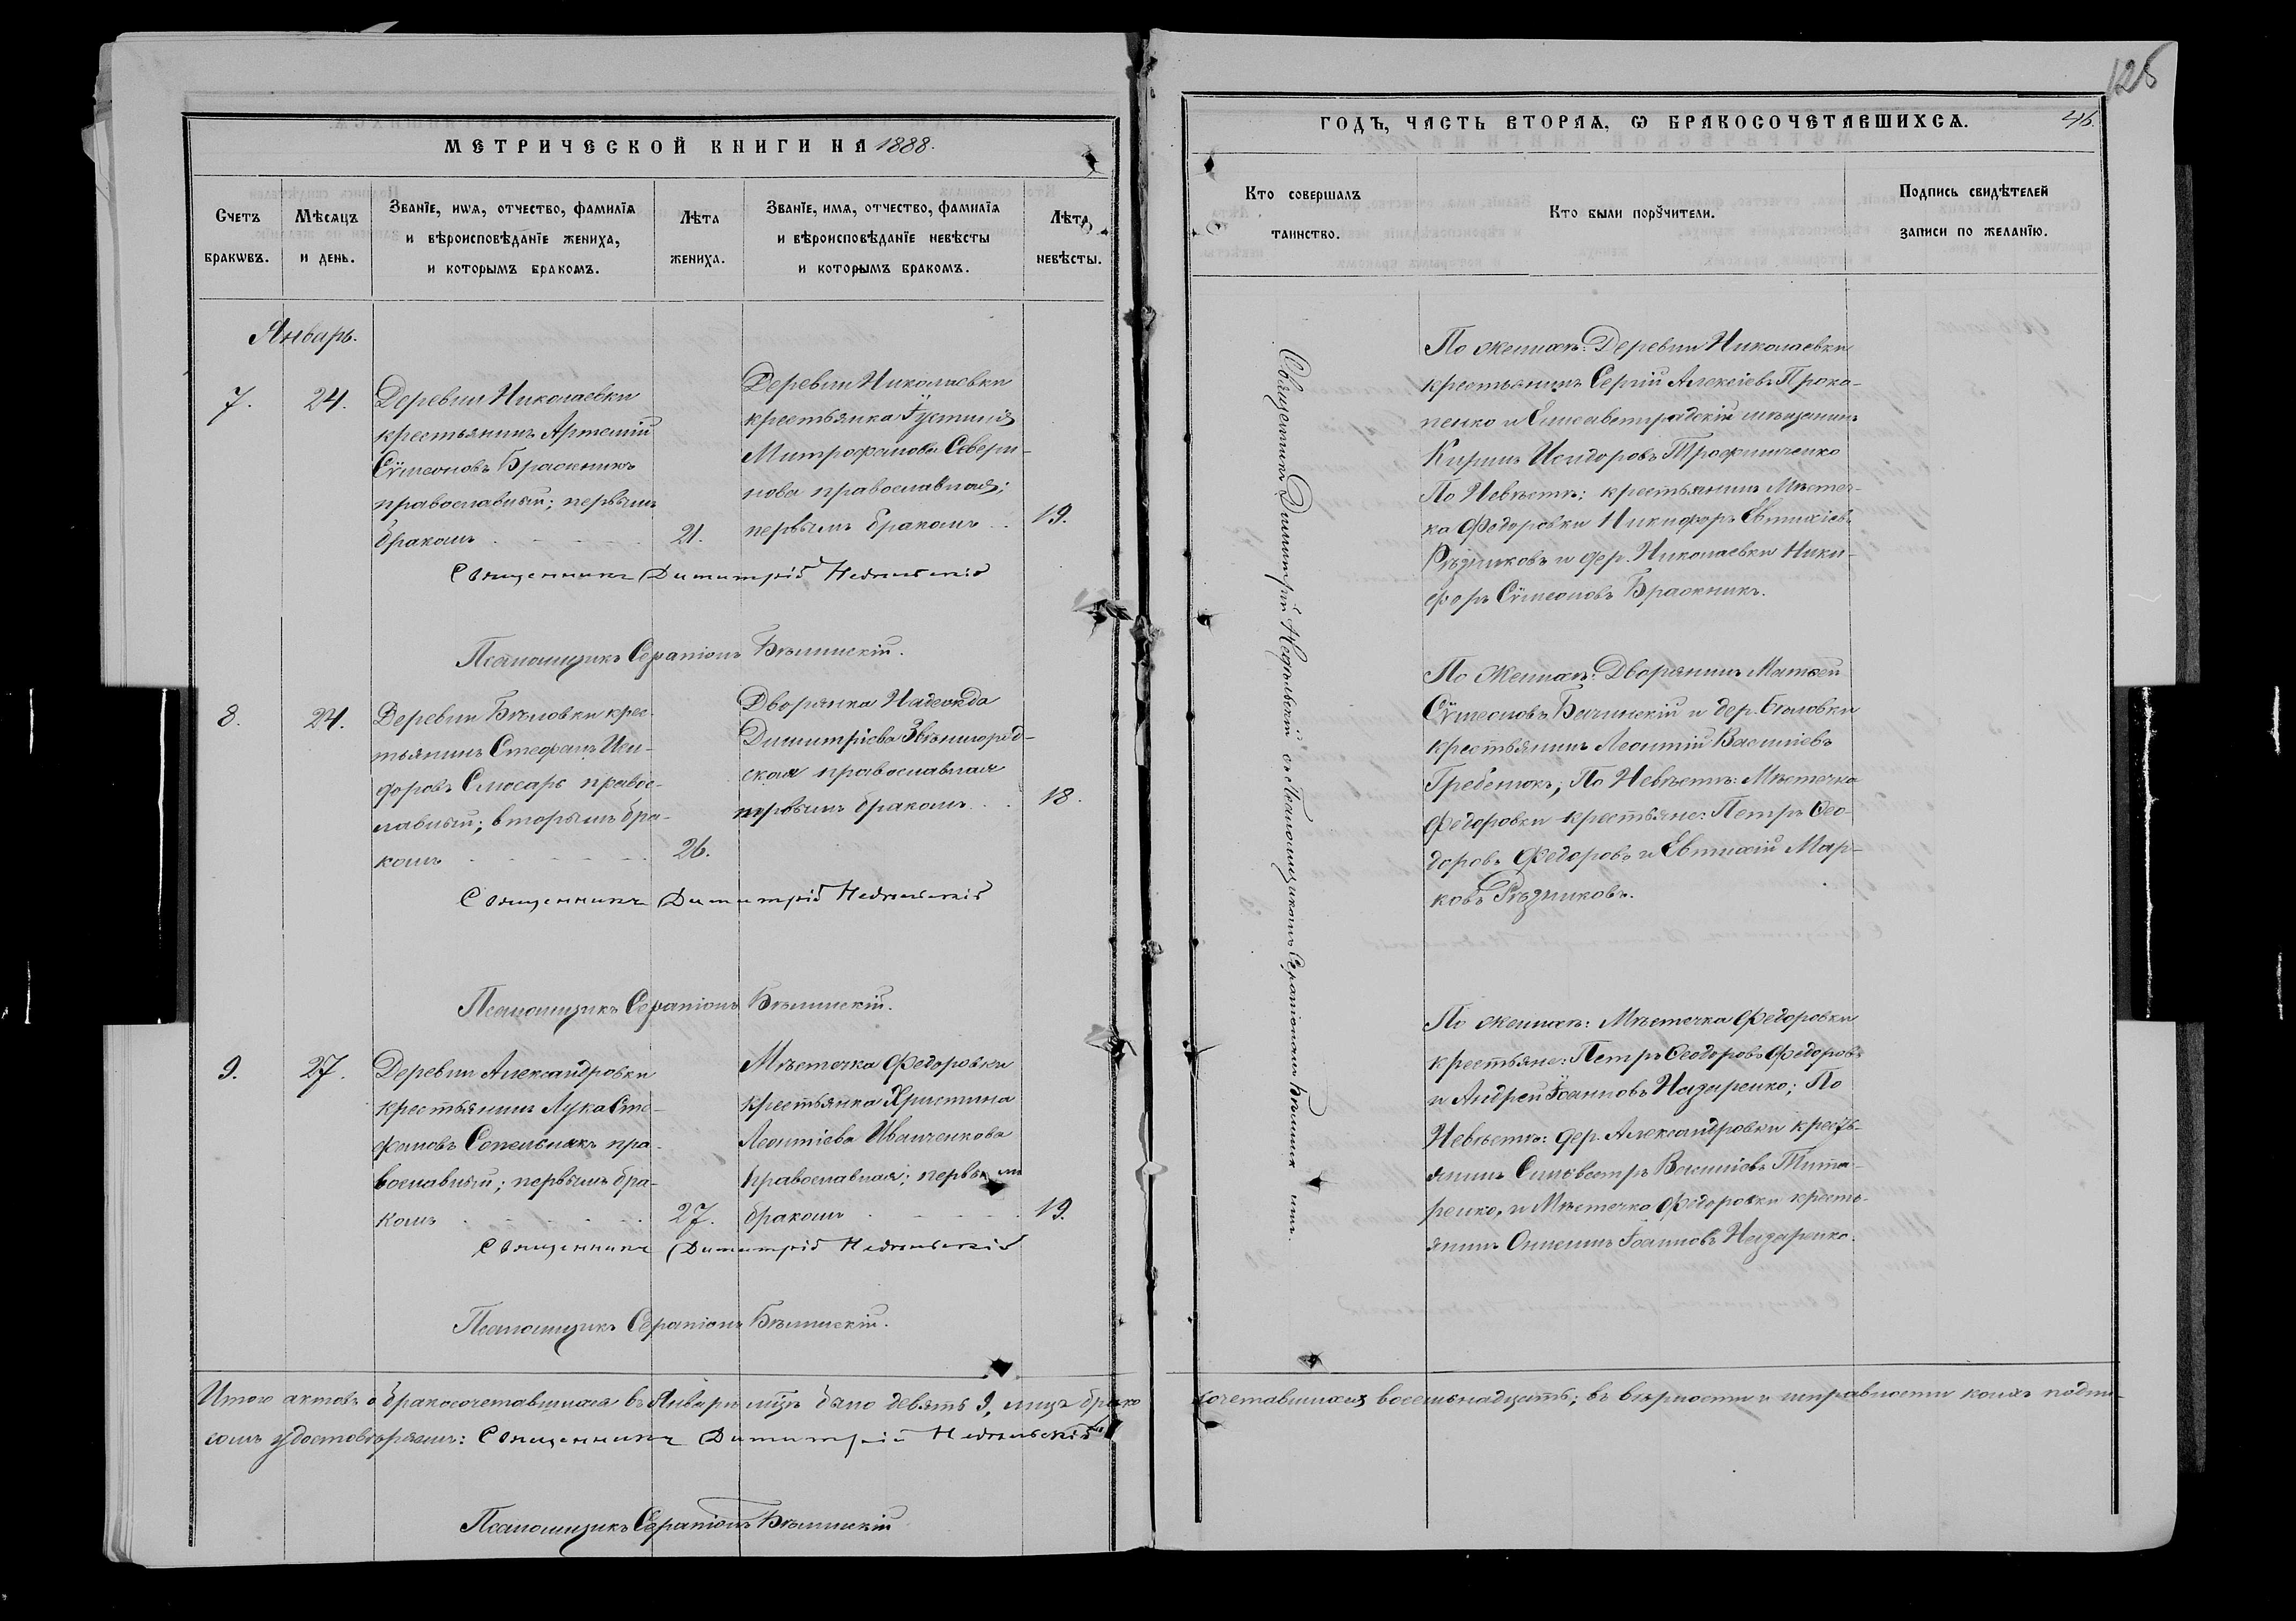 МЕТРИЧЕСКОЙ КНИГИ НА 1888.
Счетъ браковъ.
Мѣсяцъ и день.
Званїе, имя, отчество, фамилїя
и вѣроисповѣданїе жениха,
и которымъ бракомъ.
Лѣта жениха.
Званїе, имя, отчество, фамилїя
и вѣроисповѣданїе невѣсты
и которымъ бракомъ.
Лѣта невѣсты.
Январь.
7. 24.
Деревни Николаевки
крестьянинъ Артемій
Сѵмеоновъ Бражникъ
православный; первымъ
бракомъ 21.
Деревни Николаевки
крестьянка Іустинія
Митрофанова Севери-
нова православная;
первымъ бракомъ 19.
Священникъ Димитрій Недѣльскій
Псаломщикъ Серапіонъ Бѣлинскій.
8. 24.
Деревни Бѣловки крес-
тьянинъ Стефанъ Иси-
доровъ Слюсарь правос-
лавный; вторымъ бра-
комъ 26.
Дворянка Надежда
Димитріева Звѣнигород-
ская православная
первымъ бракомъ 18.
Священникъ Димитрій Недѣльскій
Псаломщикъ Серапіонъ Бѣлинскій.
9. 27.
Деревни Александровки
крестьянинъ Лука Сте-
фановъ Сопельникъ пра-
вославный; первымъ бра-
комъ 27.
Мѣстечка Федоровки
крестьянка Христина
Леонтіева Иванченкова
православная; первымъ
бракомъ 19.
Священникъ Димитрій Недѣльскій
Псаломщикъ Серапіонъ Бѣлинскій.
Итого актовъ о бракосочетавшихся въ Январѣ мцѣ было девять 9, лицъ брако
сомъ удостовѣряемъ: Священникъ Димитрій Недѣльскій
Псаломщикъ Серапіонъ Бѣлинскій
128
ГОДЪ, ЧАСТЬ ВТОРАЯ, Ѡ БРАКОСОЧЕТАВШИХСЯ. 46.
Кто совершалъ
таинство.
Кто были порꙋчители.
Подпись свидѣтелей
записи по желанїю.
Священникъ Димитрій Недѣльскій съ Псаломщикомъ Серапіономъ Бѣлинскимъ.
По женихѣ: Деревни Николаевки
крестьянинъ Сергій Алексіевъ Проко-
пенко и Елисаветградскій мѣщанинъ
Кирилъ Исидоровъ Трофимченко
По Невѣстѣ: крестьянинъ Мѣстеч-
ка Федоровки Никифоръ Евтихіевъ
Рѣзниковъ и дер. Николаевки Ники-
форъ Сѵмеоновъ Бражникъ.
По Женихѣ: Дворянинъ Матѳей
Сѵмеоновъ Бачинскій и дер. Бѣловки
крестьянинъ Леонтій Василіевъ
Гребенюкъ; По Невѣстѣ: Мѣстечка
Федоровки крестьяне: Петръ Ѳео-
доровъ Федоровъ и Евтихій Мар-
ковъ Рѣзниковъ.
По женихѣ: Мѣстечка Федоровки
крестьяне: Петръ Ѳеодоровъ Федоровъ
и Андрей Іоанновъ Назаренко; По
Невѣстѣ: дер. Александровки кресть-
янинъ Сильвестръ Василіевъ Тита-
ренко, и Мѣстечка Федоровки кресть-
янинъ Онисимъ Іоанновъ Назаренко.
сочетавшихся восемьнадцать; въ вѣрности и исправности коихъ подпи-